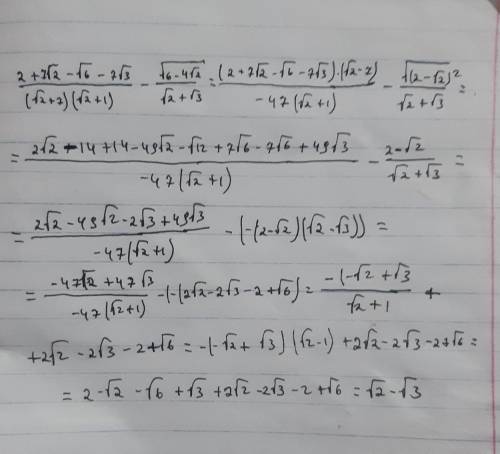 (2+7√2-√6-7√3)/((√2+7)(√2+1)) - √(6-4√2)/(√2+√3) = ((2+7√2-√6-7√3)·(√2-7))/(-47(√2+1)) - √((2-√2)²)/(√2+√3) =
= (2√2-14+14-49√2-√12+7√6-7√6+49√3)/(-47(√2+1)) - (2-√2)/(√2+√3) =
= (2√2-49√2-2√3+49√3)/(-47(√2+1)) - (-(2-√2)(√2-√3)) =
= (-47√2+47√3)/(-47(√2+1)) - (-(2√2-2√3-2+√6) = (-(-√2+√3)/(√2+1) +
+2√2-2√3-2+√6 = -(-√2+√3)(√2-1)+2√2-2√3-2+√6 =
= 2-√2-√6+√3+2√2-2√3-2+√6 = √2-√3